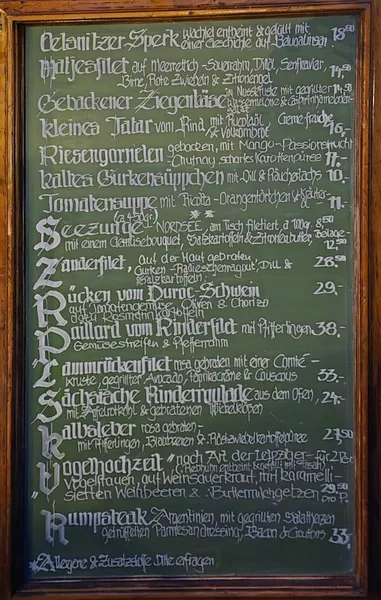 Oelsnitzer-Sperk Wachtel entbeint & gefüllt mit
einer Geschichte auf Belugalinsen 18,50
Matjesfilet auf Meerrettich-Sauerrahm, Dill, Senfkaviar,
Birne, Rote Zwiebeln & Zitronengel 14,50
Gebackener Ziegenkäse in Nusskruste mit gegrillter
14,50
kleines Tatar vom Rind, mit &
Creme-fraiche 16,-
Riesengarnelen gebacken, mit Mango-Passionsfrucht
Chutney, scharfes Karottenpüree 17,-
kaltes Gurkensüppchen mit Dill & Räucherlachs 10,-
Tomatensuppe mit Ricotta-Orangentörtchen & Kräuter-
11,-
**
Seezunge NORDSEE, am Tisch filetiert, á 100gr. 8,50
mit einem Gemüsebouquet, Salzkartoffeln & Zitronenbutter, Beilage
12,50
Zanderfilet, Auf der Haut gebraten
Gurken-Radieschenragout, Dill &
Salzkartoffeln 28,50
Rücken vom Duroc-Schwein
auf Tomatengemüse, Oliven & Chorizo
dazu Rosmarinkartoffeln 29,-
Paillard vom Rinderfilet mit Pfifferlingen 38,-
Gemüsestreifen & Pfefferrahm
Lammrückenfilet rosa gebraten mit einer Comté-
kruste, gegrillter Avocado, Paprikacrème & Couscous 33,-
Sächsische Rindsroulade aus dem Ofen, 24,-
mit Apfelrotkohl & gebratenen Wickelklößen
Kalbsleber rosa gebraten,
mit Pfifferlingen, Blaubeeren & Röstzwiebelkartoffelpüree 27,50
"Vogelhochzeit" nach Art der Leipziger für 2 Pers
(Rebhuhn entbeint & gefüllt mit Fasan)
Vogelfrauen, auf Weinsauerkraut, mit karamelli-
sierten Weinbeeren & Buttermilchgetzen 29,50
pro P.
Rumpsteak Argentinien, mit gegrillten Salatherzen
getrüffelten Parmesandressing, Bacon & Croutons 33,-
*Allergene & Zusatzstoffe bitte erfragen